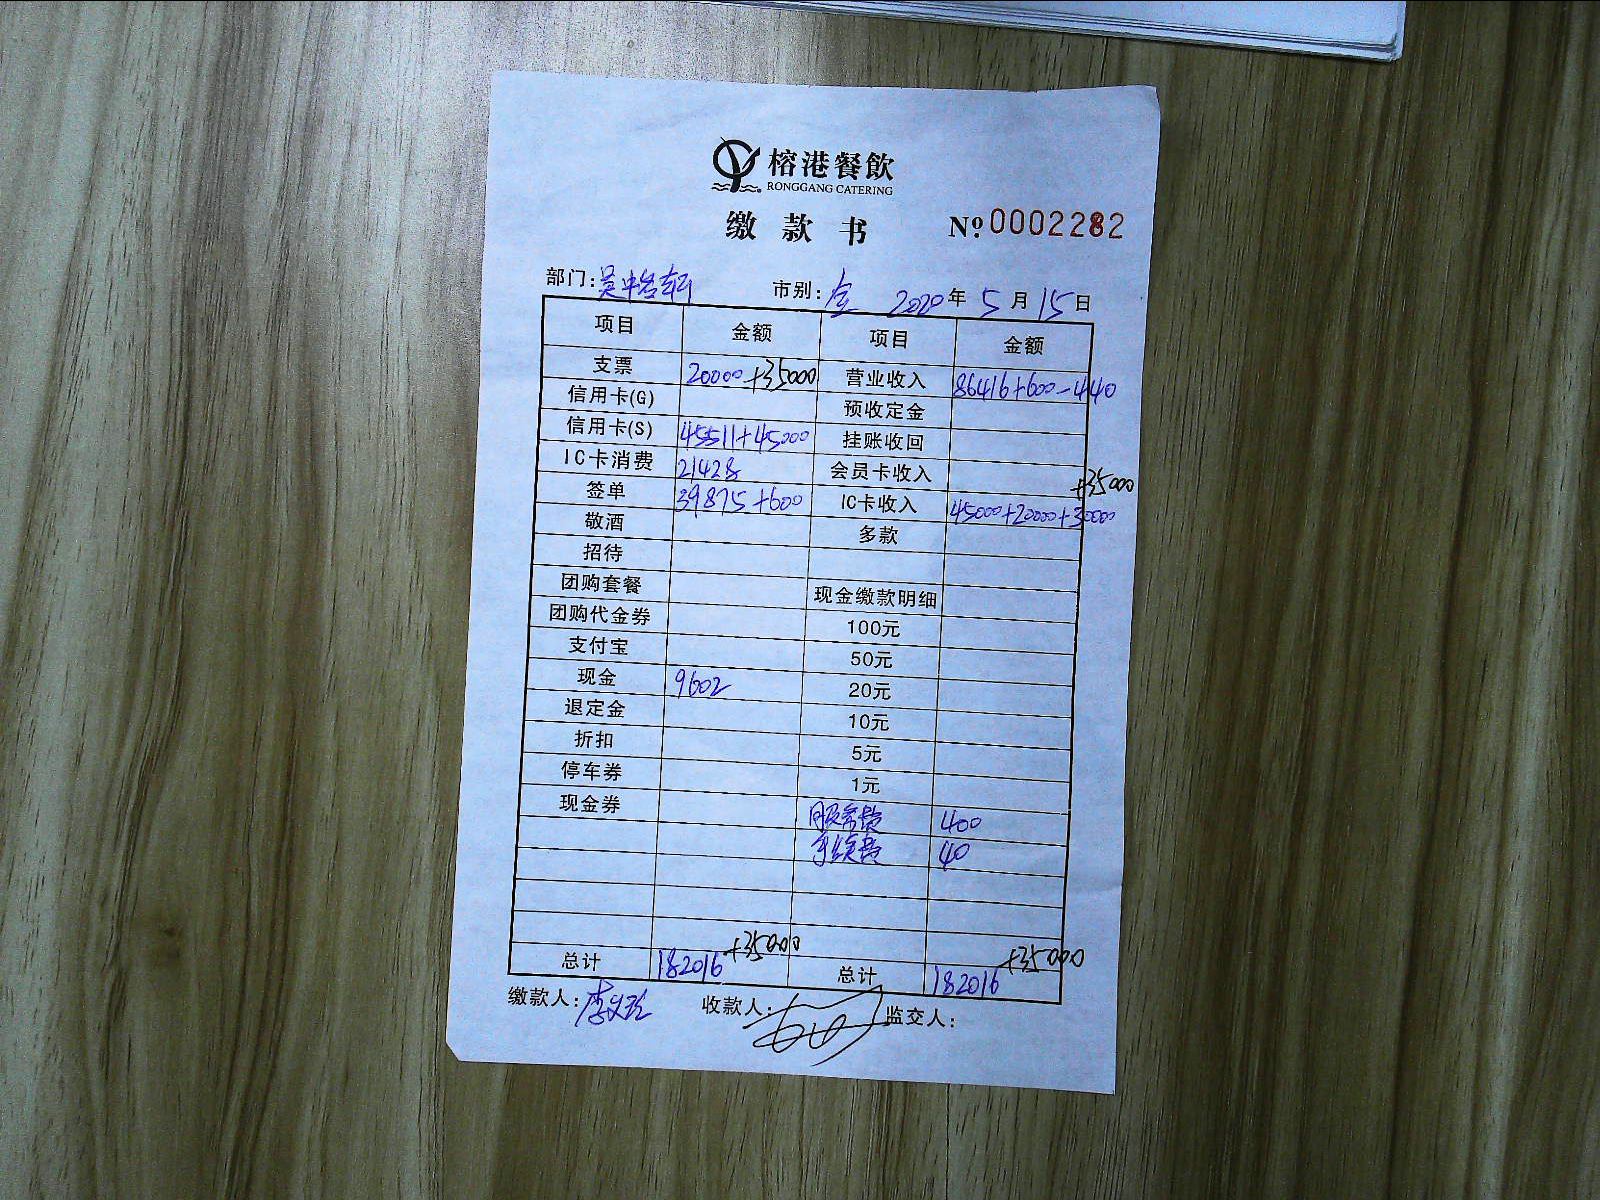 榕港餐飲
RONGGANG CATERING
缴款书 №0002282
部门: 吴中 轩 市别: 全 2020年5月15日
项目 金额 项目 金额
支票 20000+35000 营业收入 86416+600-440
信用卡(G) 预收定金
信用卡(S) 45511+45000 挂账收回
IC卡消费 21428 会员卡收入
+35000
签单 39875+600 IC卡收入 45000+20000+30000
敬酒 多款
招待
团购套餐 现金缴款明细
团购代金券 100元
支付宝 50元
现金 9602 20元
退定金 10元
折扣 5元
停车券 1元
现金券 服务费 400
手续费 40
+35000 +35000
总计 182016 总计 182016
缴款人: 李 收款人: 监交人: